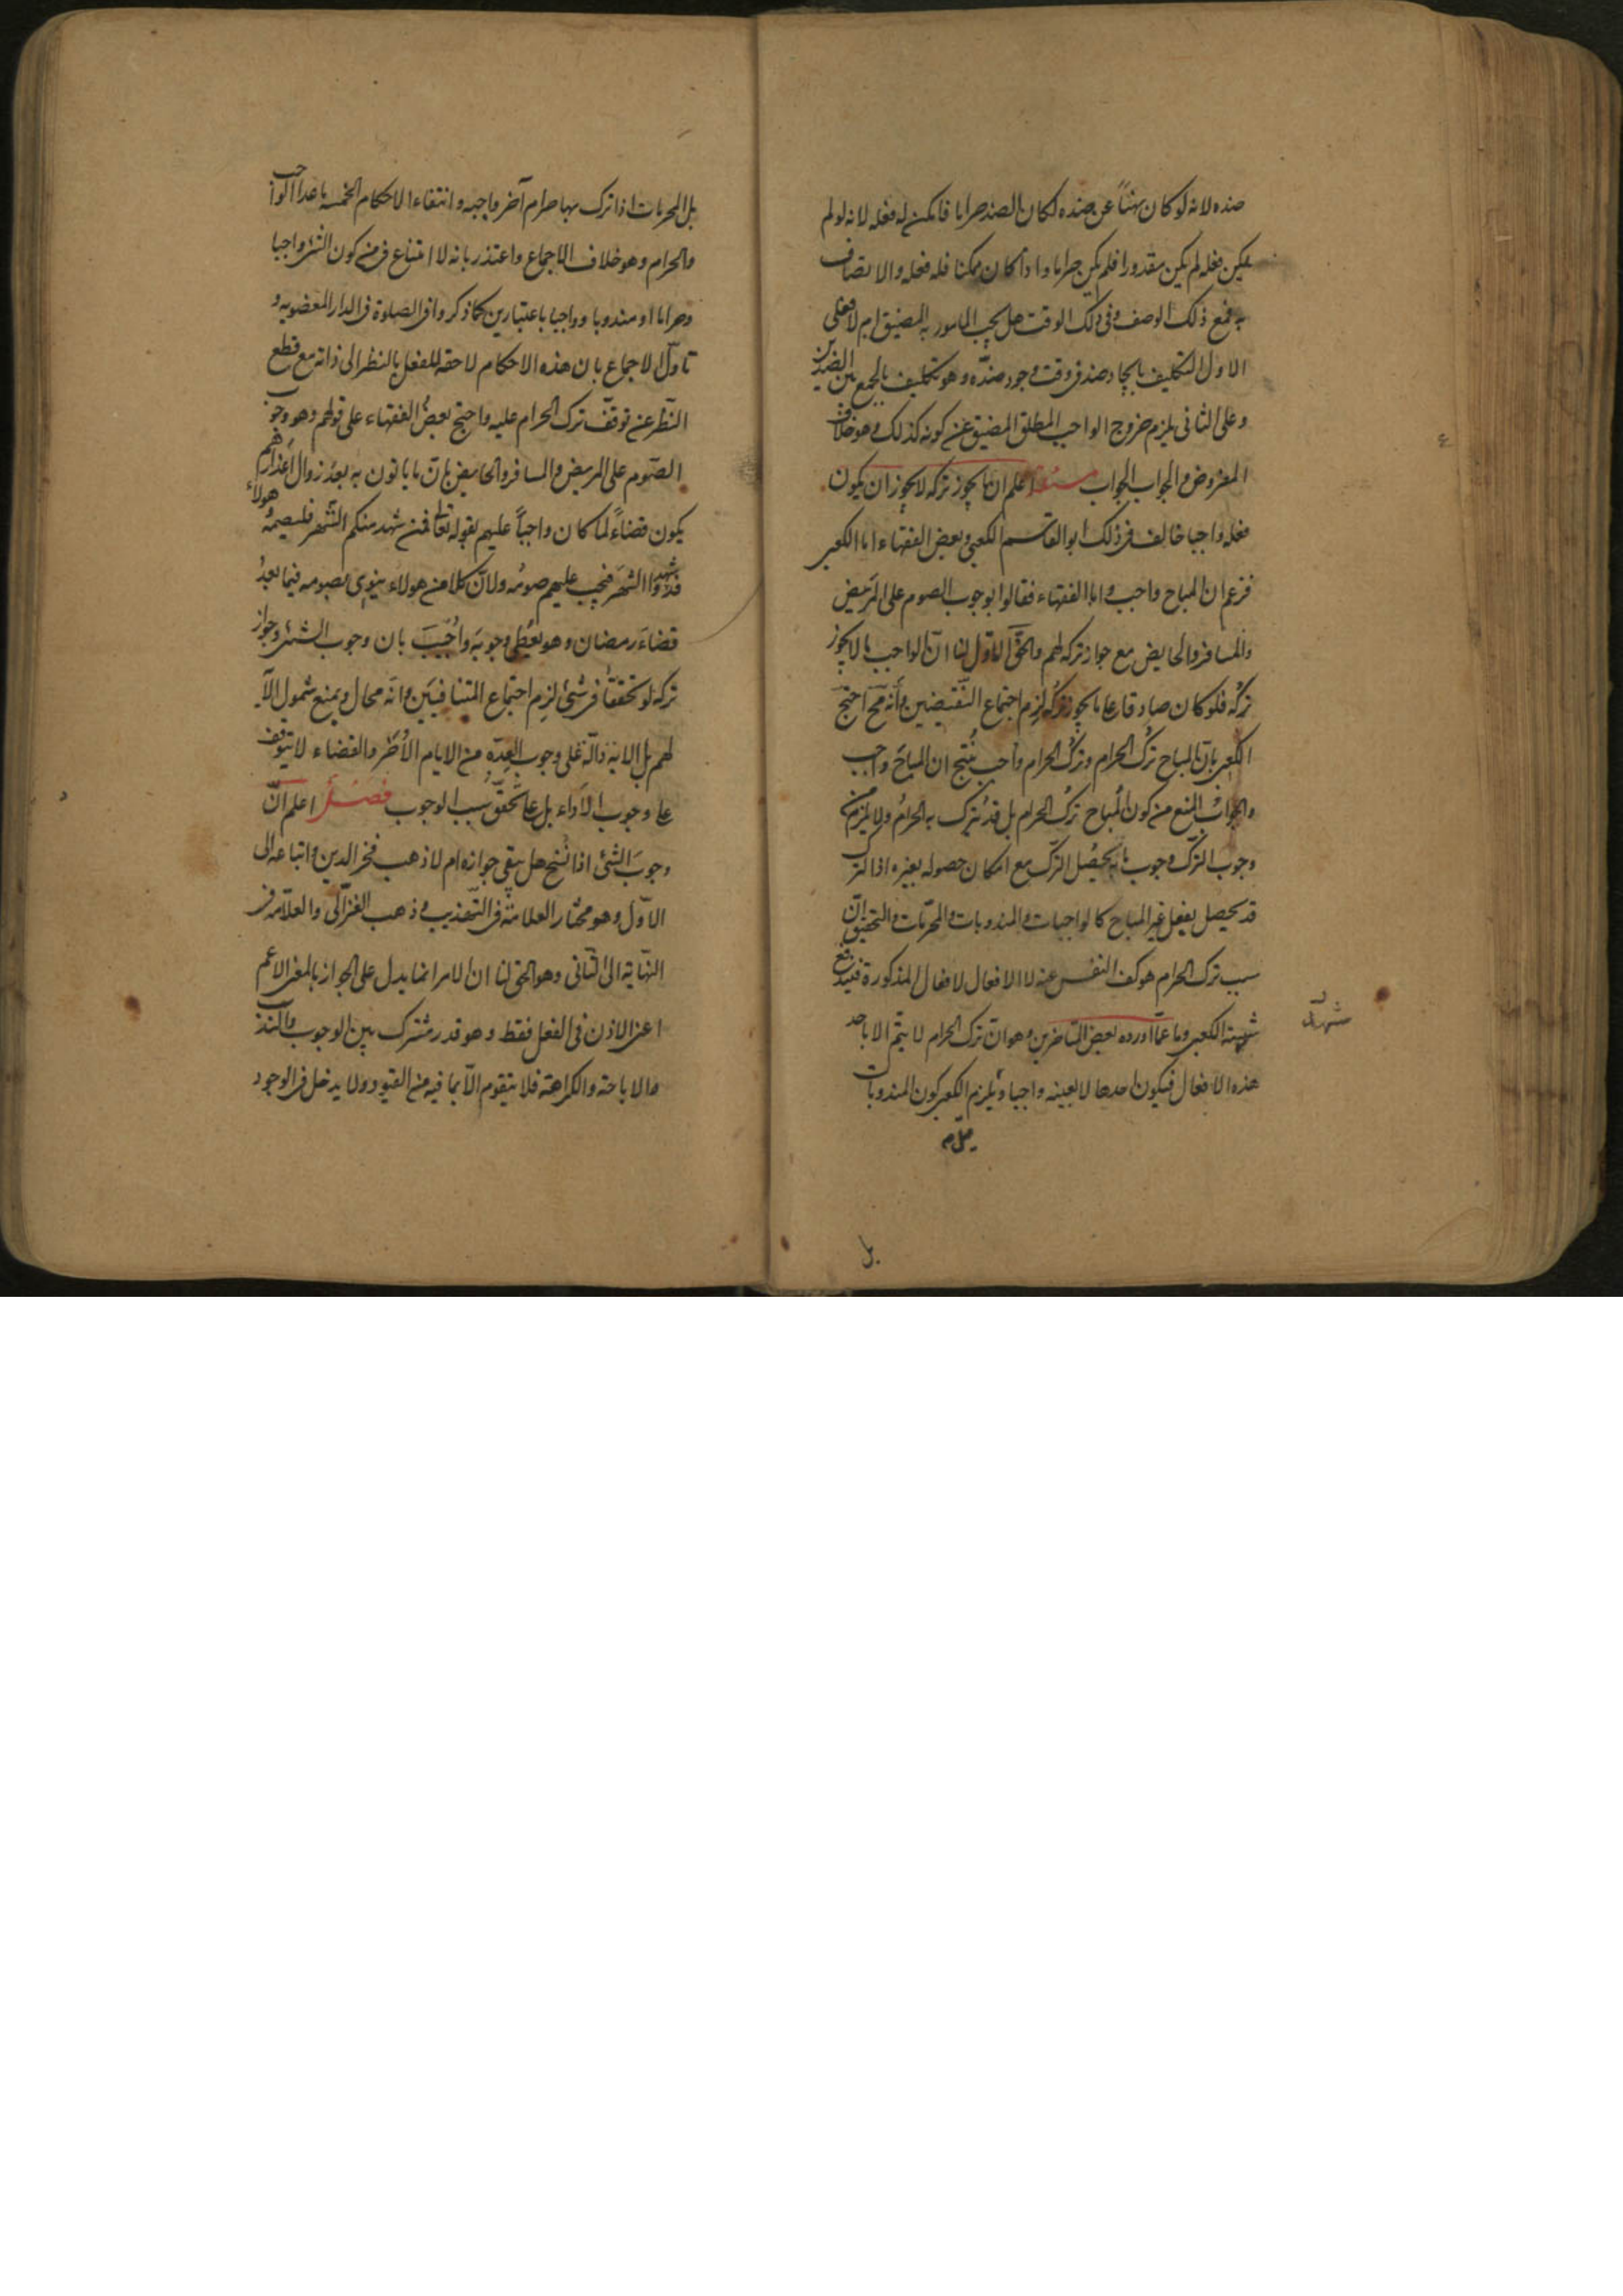 ضده لانه لو كان نهيا عن ضده لكان الضد حراما فامكن له فعله لانه لو لم
يمكن فعله لم يكن مقدورا فلم يكن حراما واذا كان ممكنا فله فعله والاتصاف
به فمع ذلك الوصف وفى ذلك الوقت هل يجب المامور به المضيق ام لا فعلى
الاول التكليف بايجاد ضد فى وقت وجود ضده وهو تكليف بالجمع بين الضدين
وعلى الثانى يلزم خروج الواجب المطلق المضيق عن كونه كذلك وهو خلاف
المفروض والجواب الجواب اعلم ان ما يجوز تركه لا يجوز ان يكون
فعله واجبا خالف فى ذلك ابو القاسم الكعبى وبعض الفقهاء اما الكعبى
فزعم ان المباح واجب واما الفقهاء فقالوا بوجوب الصوم على المريض
والمسافر والحايض مع جواز تركه لهم والحق الاول لنا ان الواجب ما لا يجوز
تركه فلو كان صادقا على ما يجوز تركه لزم اجتماع النقيضين وانه مح احتج
الكعبى بان المباح ترك الحرام وترك الحرام واجب ينتج ان المباح واجب
والجواب المنع من كون المباح ترك الحرام بل قد يترك به الحرام ولا يلزم من
وجوب الترك وجوب ما به يحصل الترك مع امكان حصوله بغيره اذ الترك
قد يحصل بفعل غير المباح كالواجبات والمندوبات والمحرمات والتحقيق ان
سبب ترك الحرام هو كف النفس عنه لا الافعال المذكورة فيندفع
شبهة الكعبى وما اورده بعض المتاخرين وهو ان ترك الحرام لا يتم الا باحد
هذه الافعال فيكون احدها لا بعينه واجبا ويلزم الكعبى كون المندوبات
بل
بل المحرمات اذا ترك بها حرام آخر واجبه وانتفاء الاحكام الخمسه ما عدا الواجب
والحرام وهو خلاف الاجماع واعتذر بانه لا امتناع فى كون الشئ واجبا
وحراما او مندوبا وواجبا باعتبارين كما ذكروا فى الصلوة فى الدار المغصوبه و
تاول الاجماع بان هذه الاحكام لاحقه للفعل بالنظر الى ذاته مع قطع
النظر عن توقف ترك الحرام عليه واحتج بعض الفقهاء على قولهم وهو وجوب
الصوم على المريض والمسافر والحايض بان ما ياتون به بعد زوال اعذارهم
يكون قضاء لما كان واجبا عليهم بقوله تعالى فمن شهد منكم الشهر فليصمه هولاء
قد شهدوا الشهر فيجب عليهم صومه ولان كلا من هولاء ينوى بصومه فيما بعد
قضاء رمضان وهو يعطى وجوبه واجيب بان وجوب الشئ وجواز
تركه لو تحققا فى شئ لزم اجتماع المتنافيين وانه محال ويمنع شمول الآية
لهم بل الايه دالة على وجوب العدة من الايام الاخر والقضاء لا يتوقف
على وجوب الاداء بل على تحقق سبب الوجوب فصل اعلم ان
وجوب الشئ اذا نسخ هل يبقى جوازه ام لا ذهب فخر الدين واتباعه الى
الاول وهو مختار العلامة فى التهذيب وذهب الغزالى والعلامه فى
النهاية الى الثانى وهو الحق لنا ان الامر انما يدل على الجواز بالمعنى الاعم
اعنى الاذن فى الفعل فقط وهو قدر مشترك بين الوجوب والندب
والاباحة والكراهة فلا يتقوم الا بما فيه من القيود ولا يدخل فى الوجود